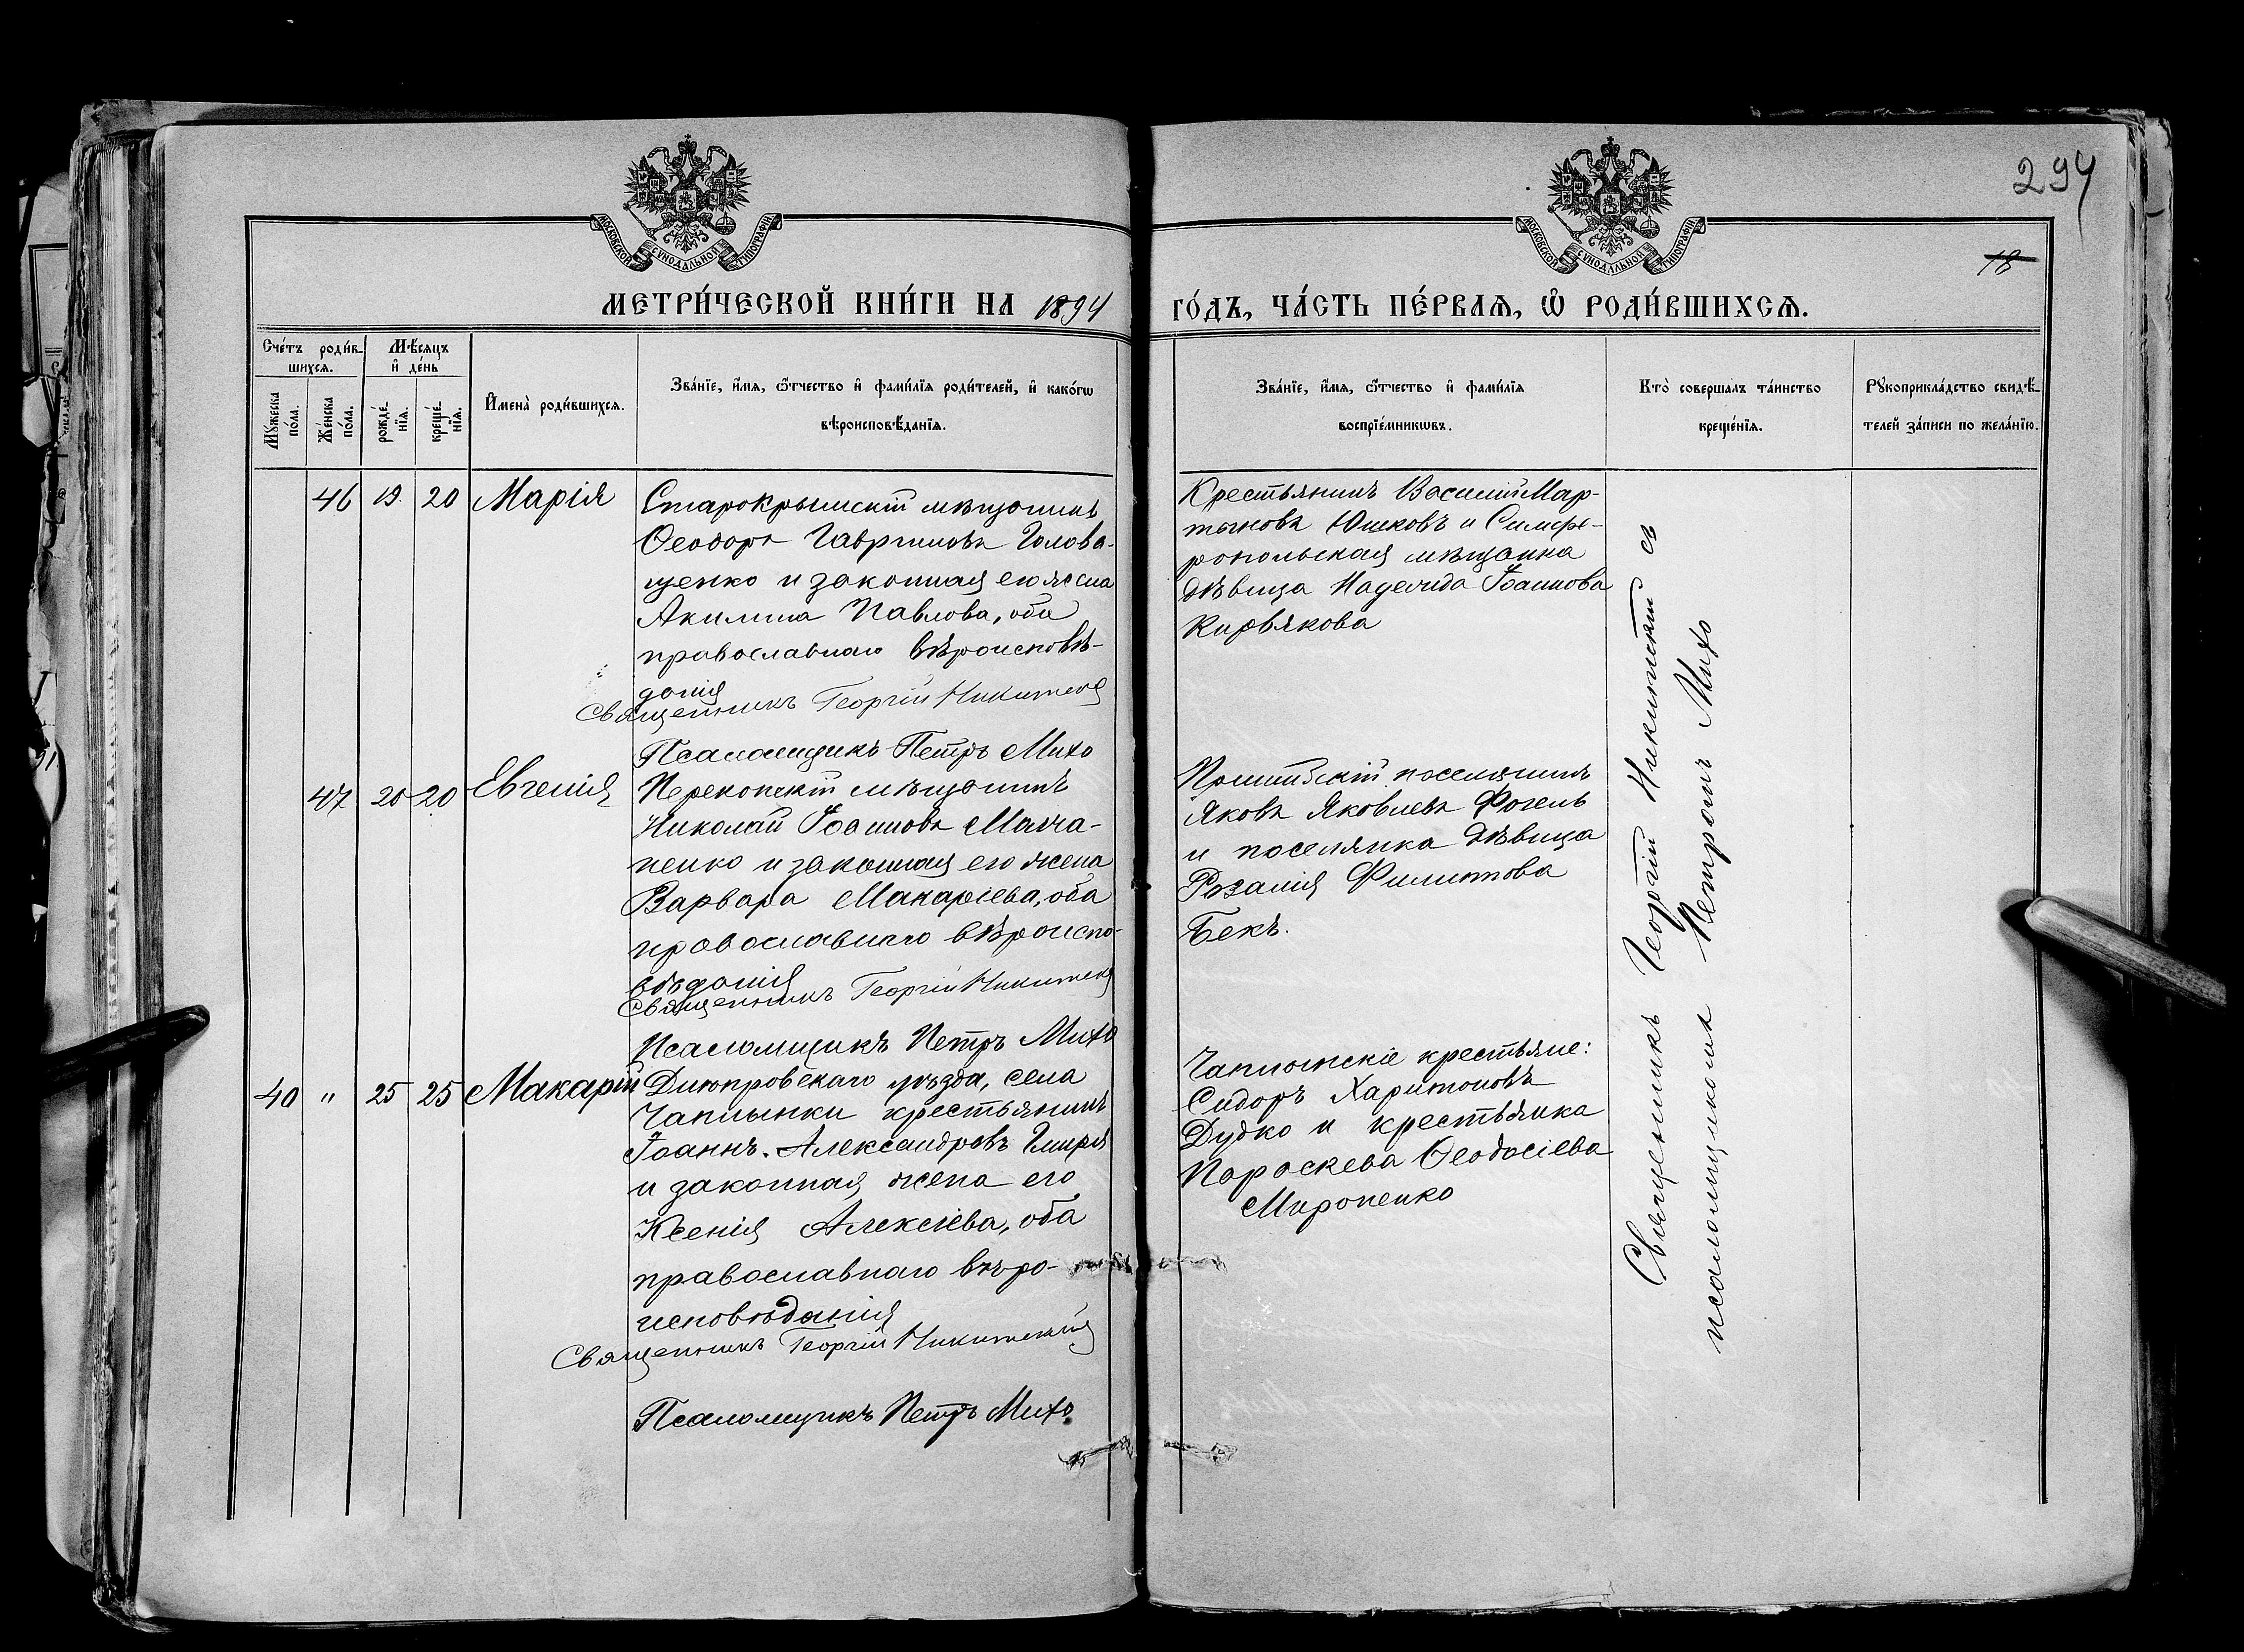 294
18
МОСКОВСКОЙ СѴНОДАЛЬНОЙ ТИПОГРАФІИ
МОСКОВСКОЙ СѴНОДАЛЬНОЙ ТИПОГРАФІИ
МЕТРИ́ЧЕСКОЙ КНИ́ГИ НА 1894 ГО́ДЪ, ЧА́СТЬ ПЕ́РВАѦ, Ѽ РОДИ́ВШИХСѦ.
Сче́тъ роди́в-
шихсѧ.
Мꙋ́жеска по́ла.
Же́нска по́ла.
Мѣ́сѧцъ
и҆ де́нь
рожде́-нїѧ.
креще́-нїѧ.
И҆мена̀ роди́вшихсѧ.
Зва́нїе, и҆́мѧ, ѻ҆́тчество и҆ фами́лїѧ роди́телей, и҆ како́гѡ
вѣроисповѣ́данїѧ.
Зва́нїе, и҆́мѧ, ѻ҆́тчество и҆ фами́лїѧ
воспрїе́мникѡвъ.
Кто̀ соверша́лъ та́инство
креще́нїѧ.
Рꙋкоприкла́дство свидѣ́-
телей за́писи по жела́нїю.
46 19. 20 Марія
Старокрымскій мѣщанинъ
Ѳеодоръ Гавриловъ Голова-
щенко и законная его жена
Акилина Павлова, оба
православнаго вѣроисповѣ-
данія
Священникъ Георгій Никитскій
Псаломщикъ Петръ Михо
Крестьянинъ Василій Мар-
тыновъ Юшковъ и Симфе-
ропольская мѣщанка
дѣвица Надежда Іоаннова
Кирьякова
47 20 20 Евгенія
Перекопскій мѣщанинъ
Николай Іоанновъ
и законная его жена
Варвара Макаріева, оба
православнаго вѣроиспо-
вѣданія
Священникъ Георгій Никитскій
Псаломщикъ Петръ Михо
поселянинъ
Яковъ Яковлевъ Фогель
и поселянка дѣвица
Розалія Филиппова
Бекъ.
40 " 25 25 Макарій
Днѣпровскаго уѣзда, села
Чаплынки крестьянинъ
Іоаннъ Александровъ
и законная жена его
Ксенія Алексіева, оба
православнаго вѣро-
исповѣданія
Священникъ Георгій Никитскій
Псаломщикъ Петръ Михо
Чаплынскіе крестьяне:
Сидоръ Харитоновъ
Дудко и крестьянка
Параскева Ѳеодосіева
Мироненко
Священникъ Георгій Никитскій съ
псаломщикомъ Петромъ Михо